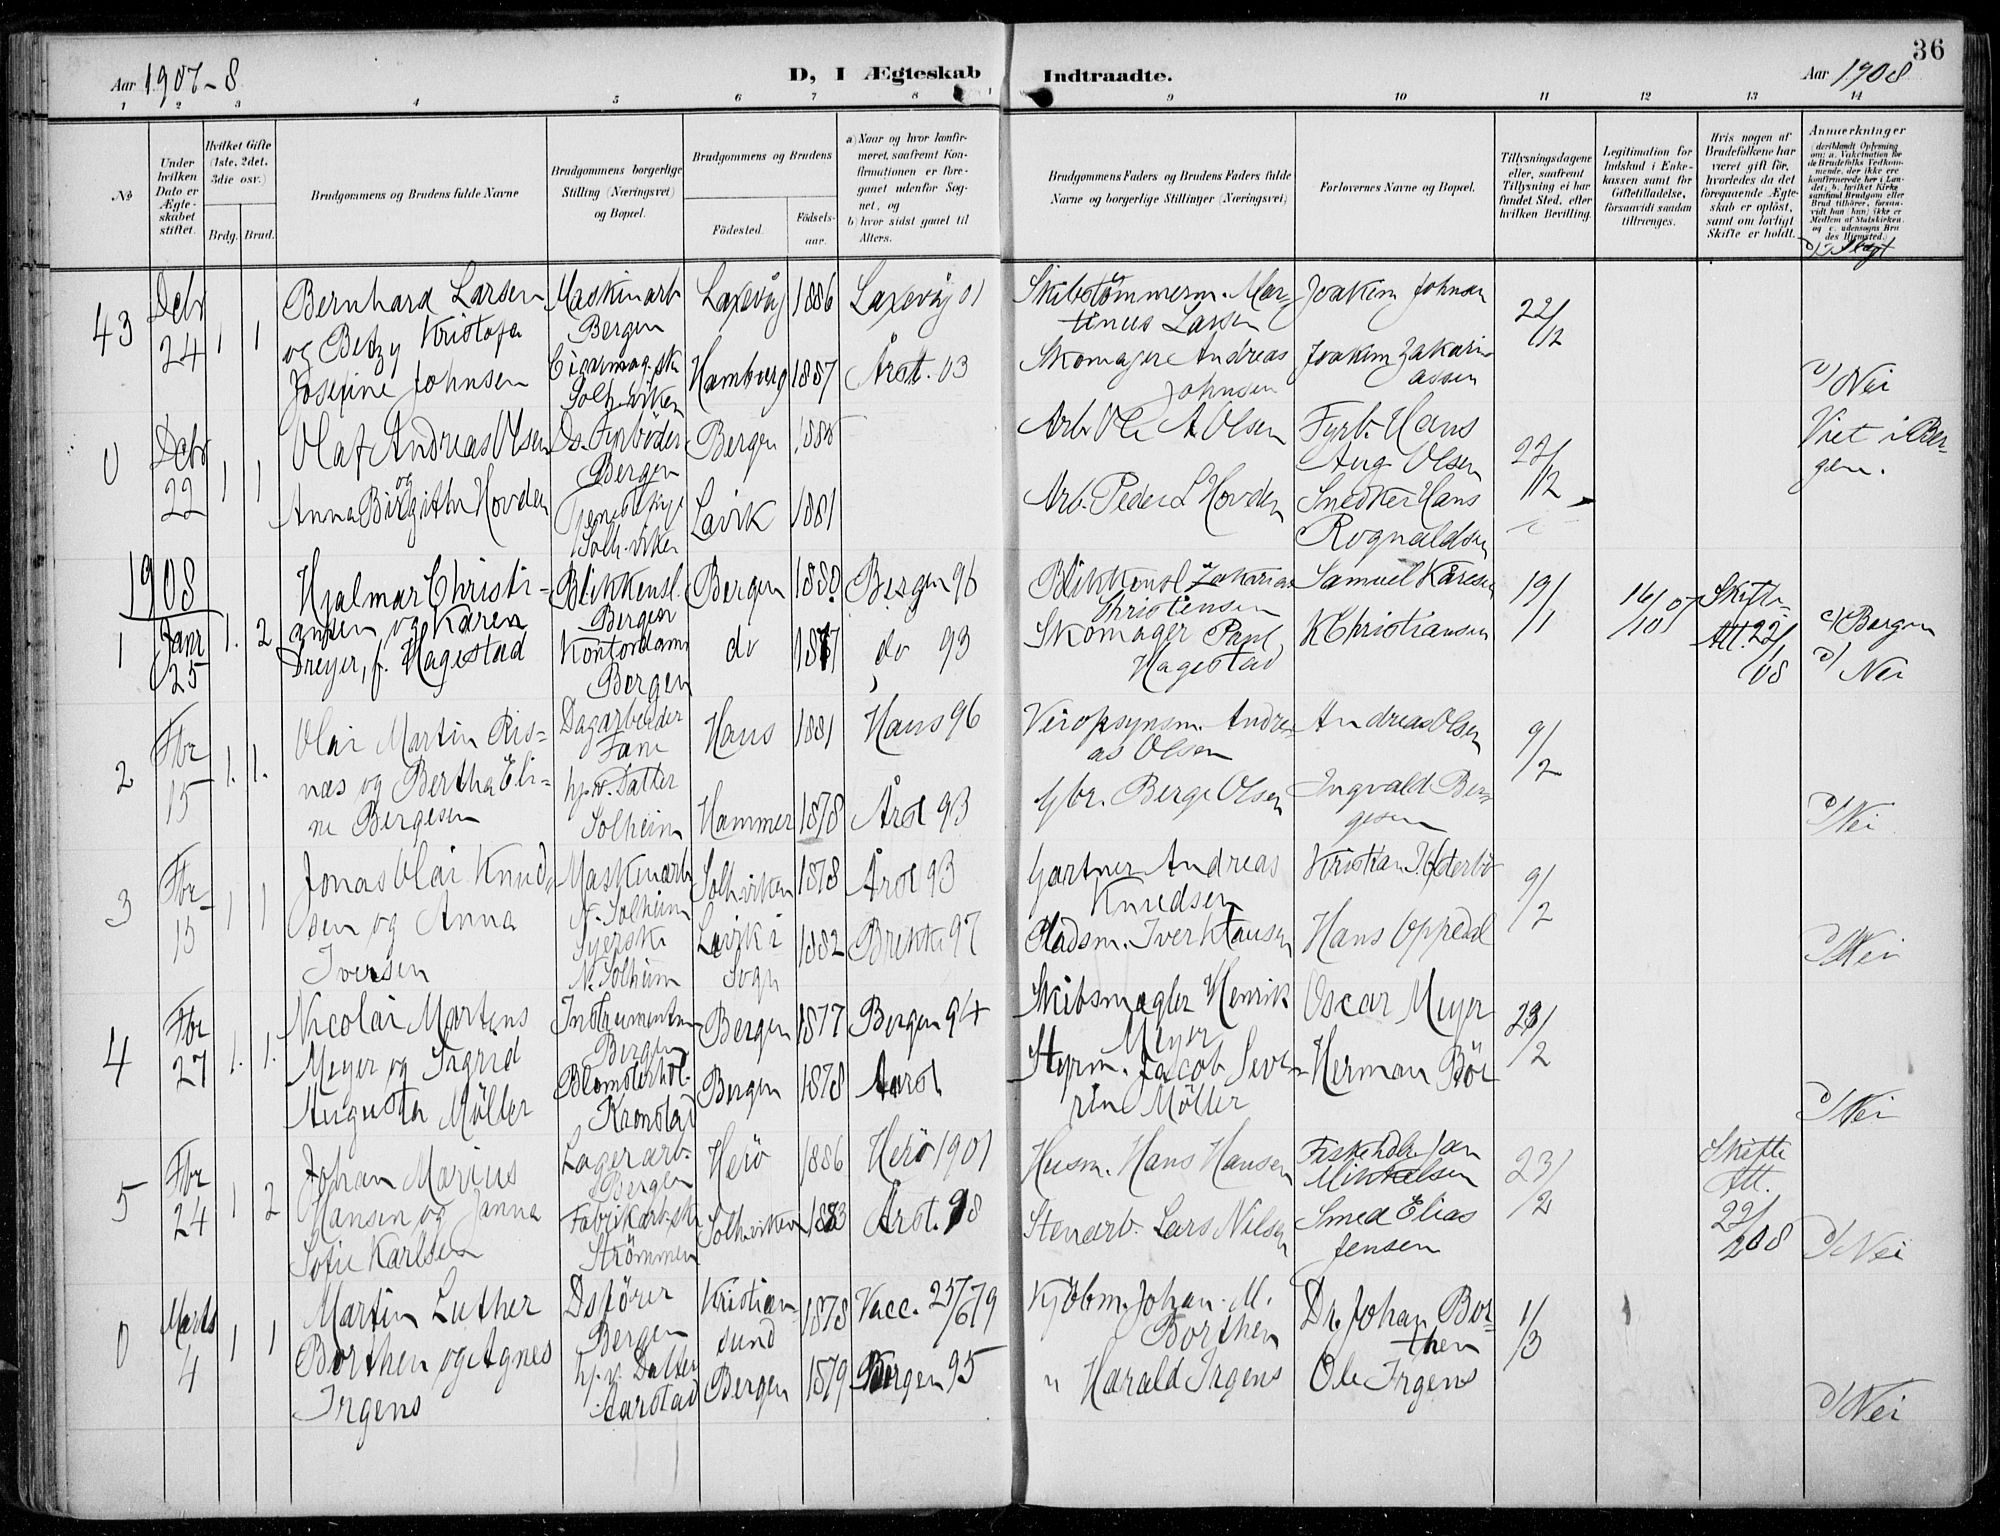 36
Aar 1907-8
D, I Ægteskab Indtraadte.
Aar 1908
1 2 3 4 5 6 7 8 9 10 11 12 13 14
No
Under hvilken Dato er Ægteskabet stiftet.
Hvilket Gifte (1ste, 2det, 3die osv.)
Brdg. Brud.
Brudgommens og Brudens fulde Navne
Brudgommens borgerlige Stilling (Næringsvei) og Bopæl.
Brudgommens og Brudens
Fødested. Fødselsaar.
a) Naar og hvor konfirmeret, saafremt Konfirmationen er foregaaet udenfor Sognet, og
b) hvor sidst gaaet til Alters.
Brudgommens Faders og Brudens Faders fulde Navne og borgerlige Stillinger (Næringsvei)
Forlovernes Navne og Bopæl.
Tillysningsdagene eller, saafremt Tillysning ei har fundet Sted, efter hvilken Bevilling.
Legitimation for Indskud i Enkekassen samt for Giftetilladelse, forsaavidt saadan tiltrænges.
Hvis nogen af Brudefolkene har været gift før, hvorledes da det foregaaende Ægteskab er opløst, samt om lovligt Skifte er holdt.
Anmerkninger
(deriblandt Oplysning om: a. Vakcination for de Brudefolks Vedkommende, der ikke ere konfirmerede her i Landet; b. hvilket Kirkesamfund Brudgom eller Brud tilhører, forsaavidt han (hun) ikke er Medlem af Statskirken, og c. udensogns Brudes Hjemsted.)
43
Debr 24
1 1
Bernhard Larsen
og Betzy Kristofa
Josefine Johnsen
Maskinarb
Bergen
Cigarmag.sk
Solh.viken
Laxevåg 1886 Laxevåg 01
Hamburg 1887 Årst. 03
Skibstömmerm. Mar-
tinus Larsen
Skomager Andreas
Johnsen
Joakim Johnsen
Joakim Zakari-
assen
22/12
d/ Nei
0
Debr 22
1 1
Olaf Andreas Olsen
og
Anna Birgithe Hovden
Ds. Fyrböder
Bergen
Solh.viken
Bergen 1885
Lavik 1881
Arb. Ole A Olsen
Arb. Peder L Hovden
Fyrb. Hans
Aug. Olsen
Snedker Hans
Rognaldsen
22/12
Viet i Ber-
gen.
1908
1
Janr 25
1. 2
Hjalmar Christi-
ansen og Karen
Dreyer, f. Hagestad
Blikkensl.
Bergen
Kontordame
Bergen
Bergen 1880 Bergen 96
do 1877 do 93
Blikkensl Zakarias
Christensen
Skomager Paul
Hagestad
Samuel Kåresen
K Christiansen
19/1
16/10 07
Skifte-
Att. 22/1 08
c/ Bergen
d/ Nei
2
Fbr 15
1. 1.
Olai Martin Ris-
næs og Bertha Eli-
ne Bergesen
Dagarbeider
Fane
hj.v. Datter
Solheim
Haus 1881 Haus 96
Hammer 1878 Årst 93
Veiopsynsm. Andre-
as Olsen
Gbr. Berge Olsen
Andreas Olsen
Ingvald Ber-
gesen
9/2
d/ Nei
3
Fbr 15
1 1
Jonas Olai Knud-
sen og Anna
Iversen
Maskinarb
N. Solheim
Syerske
N. Solheim
Solh.viken 1878 Årst 93
Lavik i
Sogn
1882 Brekke 97
Gartner Andreas
Knudsen
Pladsm. Iver Hansen
Hans Oppedal
9/2
d/ Nei
4
Fbr 27
1. 1.
Nicolai Martens
Meyer og Ingrid
Augusta Möller
Bergen
Kronstad
Bergen 1877 Bergen 94
Bergen 1878 Aarst
Skibsmægler Henrik
Meyer
Styrm. Jacob Seve-
rin Möller
Oscar Meyer
Herman Böe
23/2
d/ Nei
5
Fbr 24
1 2
Johan Marius
Hansen og Janna
Sofie Karlsen
Lagerarb.
Bergen
Fabrikarb.sk
Strömmen
Herö 1886 Herö 1901
Solh.viken 1883 Årst. 98
Husm. Hans Hansen
Stenarb. Lars Nilsen
Fiskehdlr Jan
Mikkelsen
Smed Elias
Jensen
23/2
Skifte
Att.
22/2 08
d/ Nei
0
Marts 4
1 1
Martin Luther
Borthen og Agnes
Irgens
Dsförer
Bergen
hj.v. Datter
Aarstad
Kristian-
sund
1878 Vacc. 25/6 79
Bergen 1879 Bergen 95
Kjöbm. Johan M.
Borthen
" Harald Irgens
Dr. Johan Bor-
then
Ole Irgens
1/3
d/ Nei